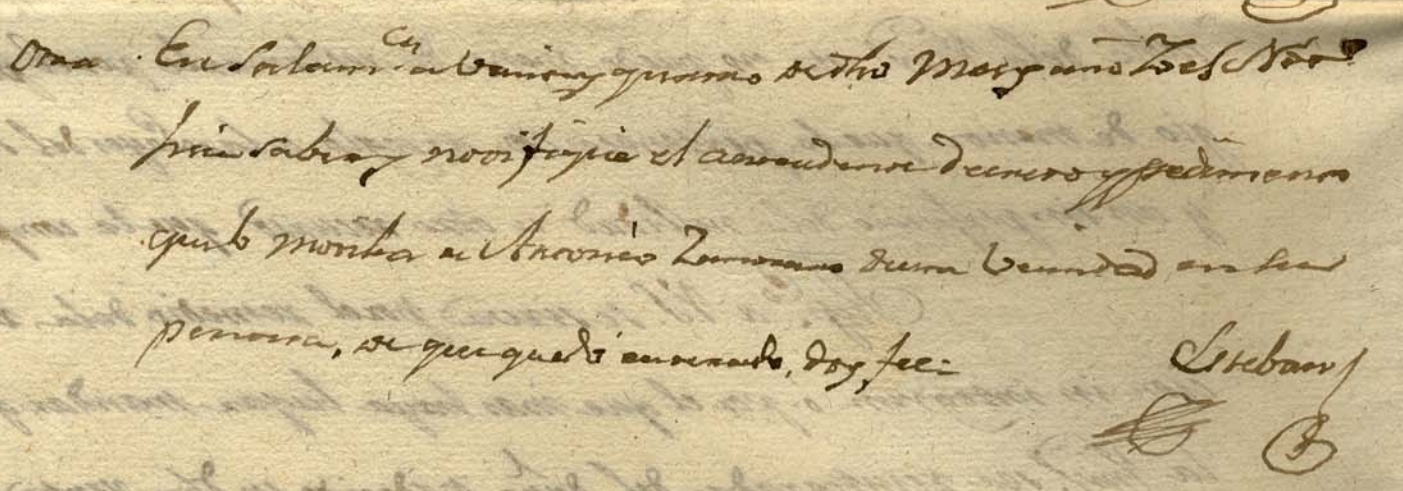 Otra. En Salam.ca a veinte y quatro de dho Mes y año Yo el Nō
hice saber y notifique el antecedente Decreto y pedimento
que lo motiba a Antonio Zamorano desta Vecindad en su
persona, de que quedó enterado, doy fee=
Esteban